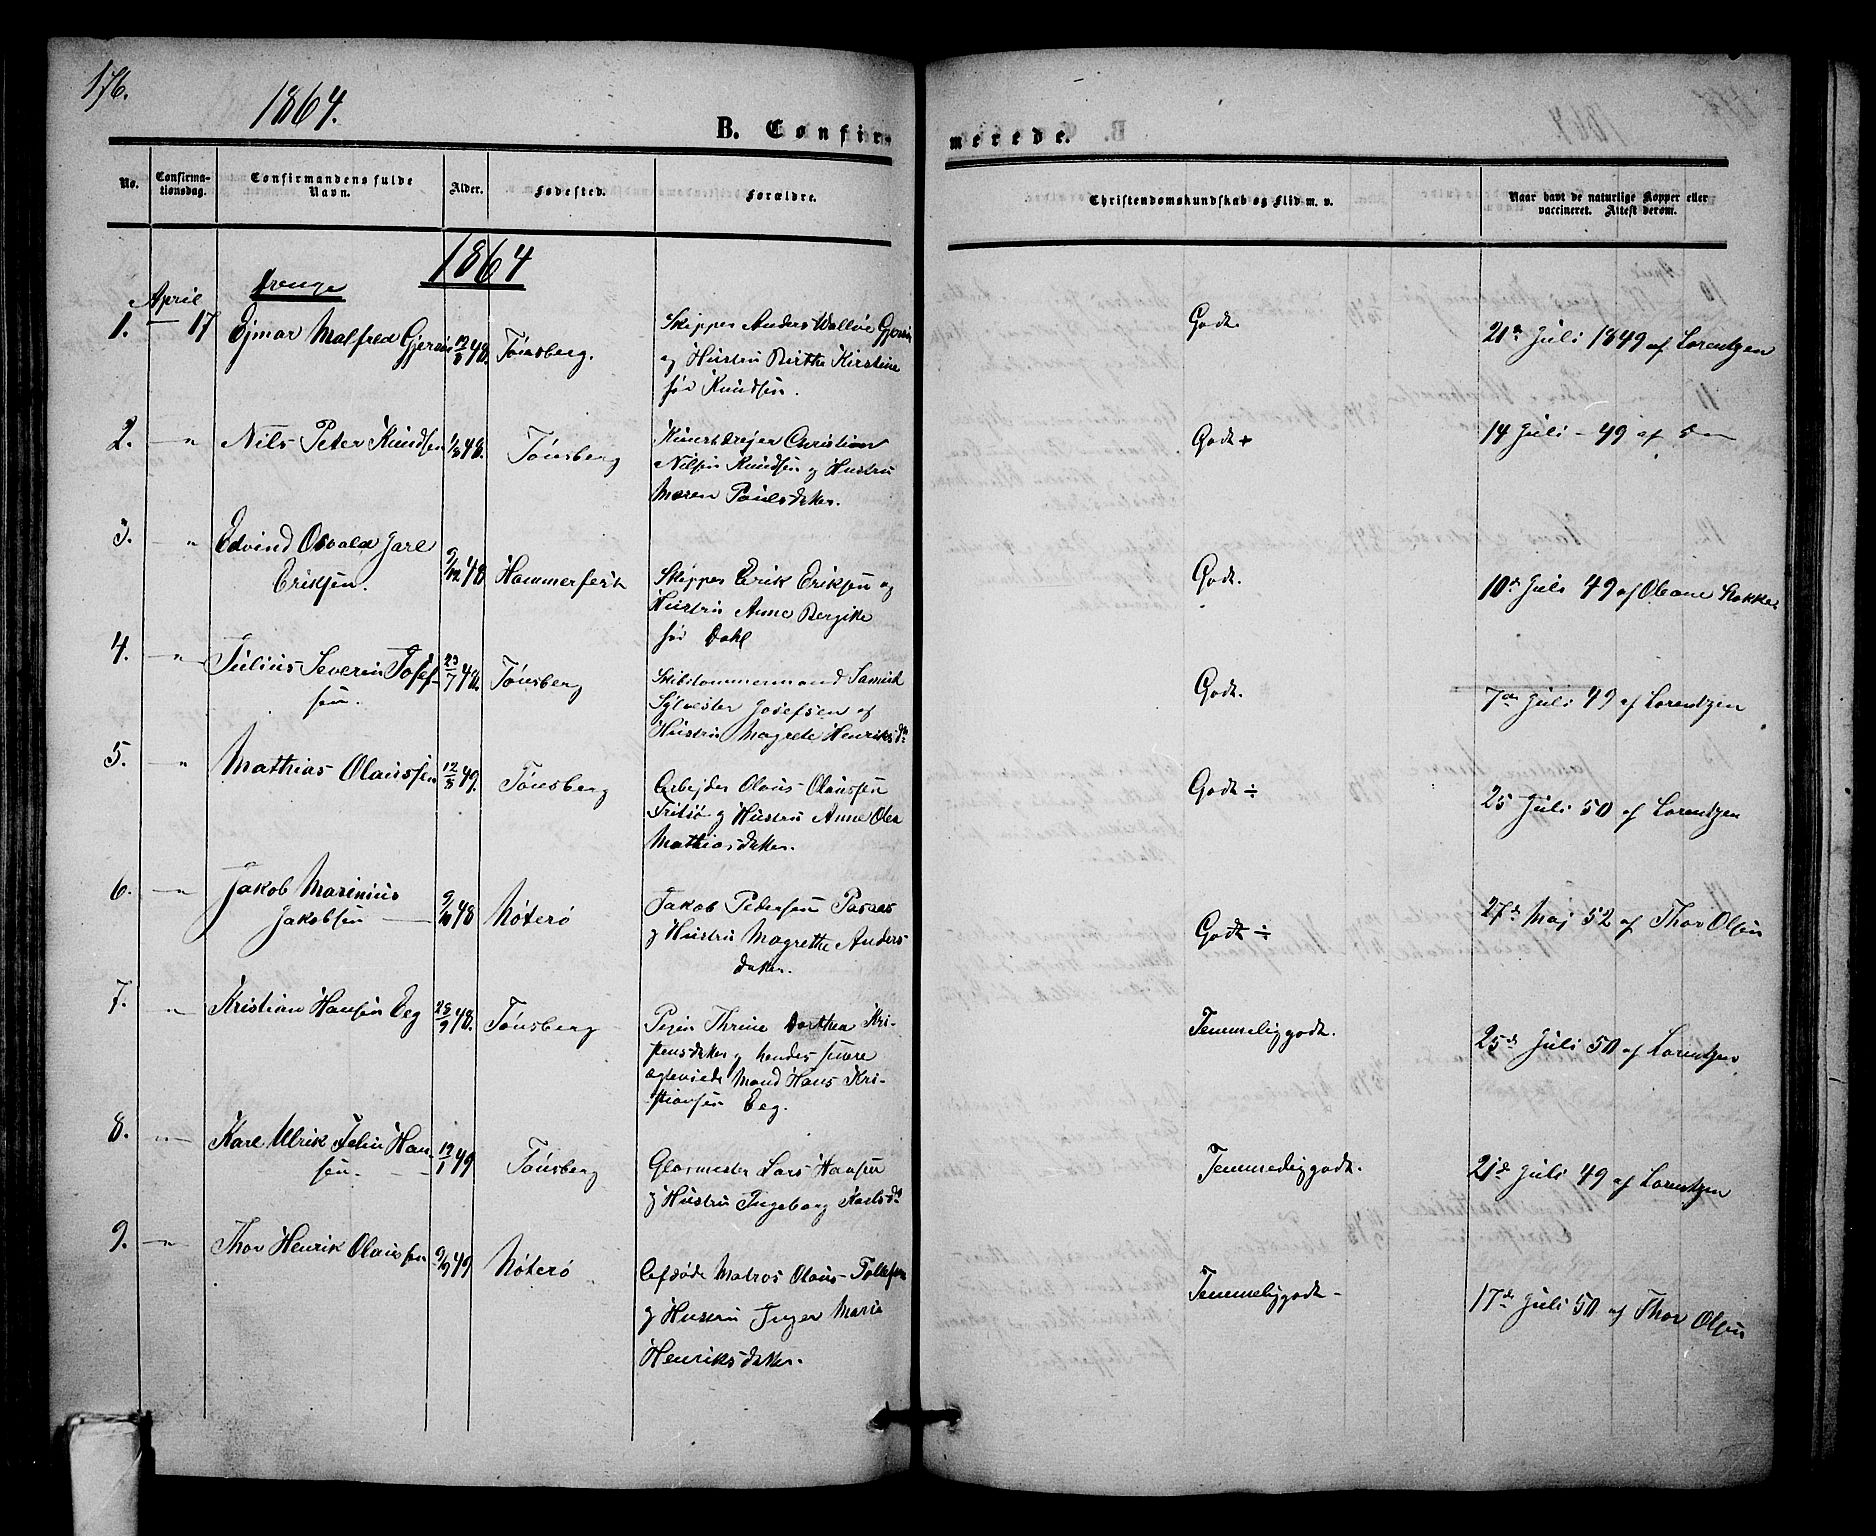 176.
1864.
B. Confirmerede.
No. Confirmationsdag. Confirmandens fulde Navn. Alder. Fødested. Forældre. Christendomskundskab og Flid m. v. Naar havt de naturlige Kopper eller vaccineret. Attest derom.
1864
Drenge
April
1. — 17 Ejmar Malfred Gjersøe 48. Tönsberg. Skipper Anders Walløe
og Hustru Birthe Kirstine
før Knudsen.
Godt.
21de Juli 1849 af Lorentzen
2. — " Nils Peter Knudsen 48. Tönsberg Kunstdrejer Christian
Nilsen Knudsen og Hustru
Maren Paulsdatter.
Godt +
14 Juli - 49 af
3. — " Edvind Osvald Jarl
Eriksen. 9/12 48 Hammerfest Skipper Erik Eriksen og
Hustru Anne Bergike
før Dahl
Godt.
10de Juli 49 af Oleane Bakker
4. — " Julius Severin Josef-
sen. 23/7 48. Tönsberg Skibstømmermand
Sylvester Josefsen af
Hustru Magrete Henriksdtr
Godt.
7de Juli 49 af Lorentzen
5. " Mathias Olaussen 49. Tönsberg Arbejder Olaus Olaussen
og Hustru Anne Olea
Mathiasdatter.
Godt ÷
25 Juli 50 af Lorentzen
6. — " Jakob Marinius
Jakobsen — 48 Nöterö Jakob Pedersen
og Hustru Magrethe Anders-
datter.
Godt ÷
27de Maj 52 af Thor Olsen
7. " Kristian Hansen Eeg 23/9 48. Tönsberg Pigen Thrine Dorthea Kri-
stensdatter og hendes senere
ægteviede Mand Hans Kri-
stiansen Eeg.
Temmelig godt.
25de Juli 50 af Lorentzen
8. — " — Karl Ulrik Felix Han-
sen. — 49 Tönsberg Glasmester Lars Hansen
og Hustru Ingeborg Karlsdtr
Temmelig godt.
21de Juli 49 af Lorentzen
9. — " — Thor Henrik Olaussen 49 Nöterö Afdöde Matros Olaus Tollefsen
og Hustru Inger Maria
Henriksdatter.
Temmelig godt -
17de Juli 50 af Thor Olsen